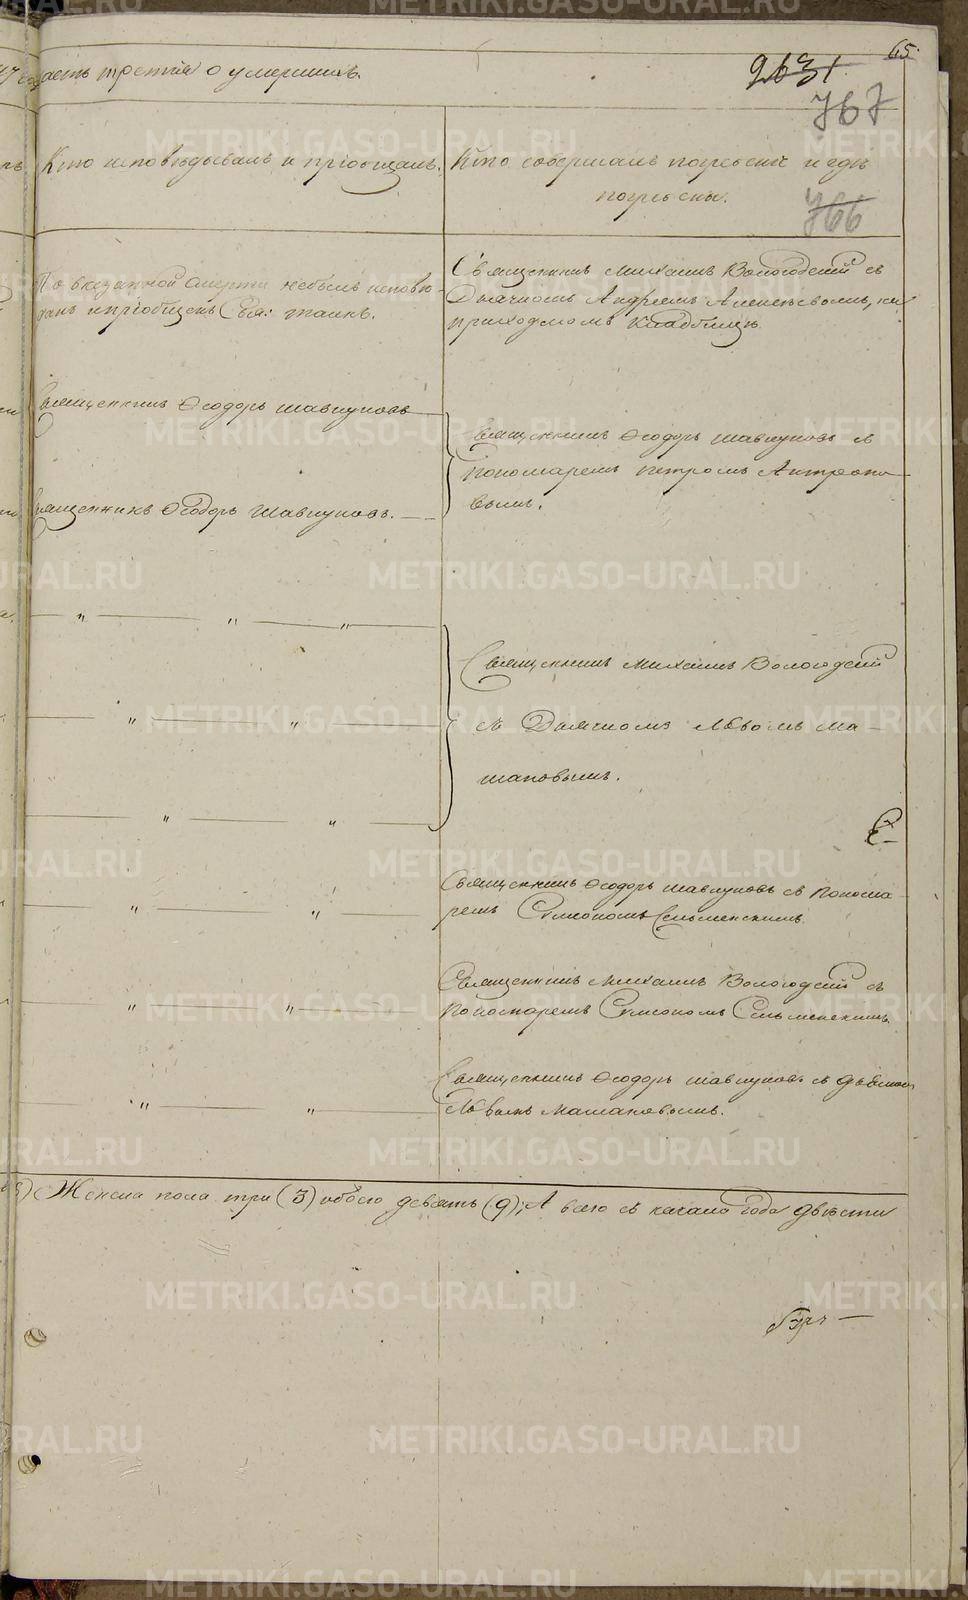 65.
9631.
767
часть третія о умершихъ.
Кто исповѣдывалъ и пріобщалъ.
Кто совершалъ погребеніе и гдѣ
погребены.
766
По внезапной смерти небылъ исповѣ-
данъ и пріобщенъ Свя: таинъ.
Священникъ Михаилъ Вологодскій съ
Дьячкомъ Андреемъ Алексѣевымъ, на
приходскомъ кладбищѣ
Священникъ Ѳеодоръ Шавкуновъ
Священникъ Ѳеодоръ Шавкуновъ.
Священникъ Ѳеодоръ Шавкуновъ съ
Пономаремъ Петромъ Антропо-
вымъ.
" " "
" "
" "
Священникъ Михаилъ Вологодскій
съ Дьячкомъ Львомъ Ма-
шановымъ.
" "
Священникъ Ѳеодоръ Шавкуновъ съ Понома-
ремъ Симеономъ Сельменскимъ.
" "
Священникъ Михаилъ Вологодскій съ
Пономаремъ Симеономъ Сельменскимъ.
" "
Священникъ Ѳеодоръ Шавкуновъ съ Дьячкомъ
Львомъ Машановымъ.
Женска пола три (3) обоего девять (9); А всего съ начала года двѣсти
METRIKI.GASO-URAL.RU